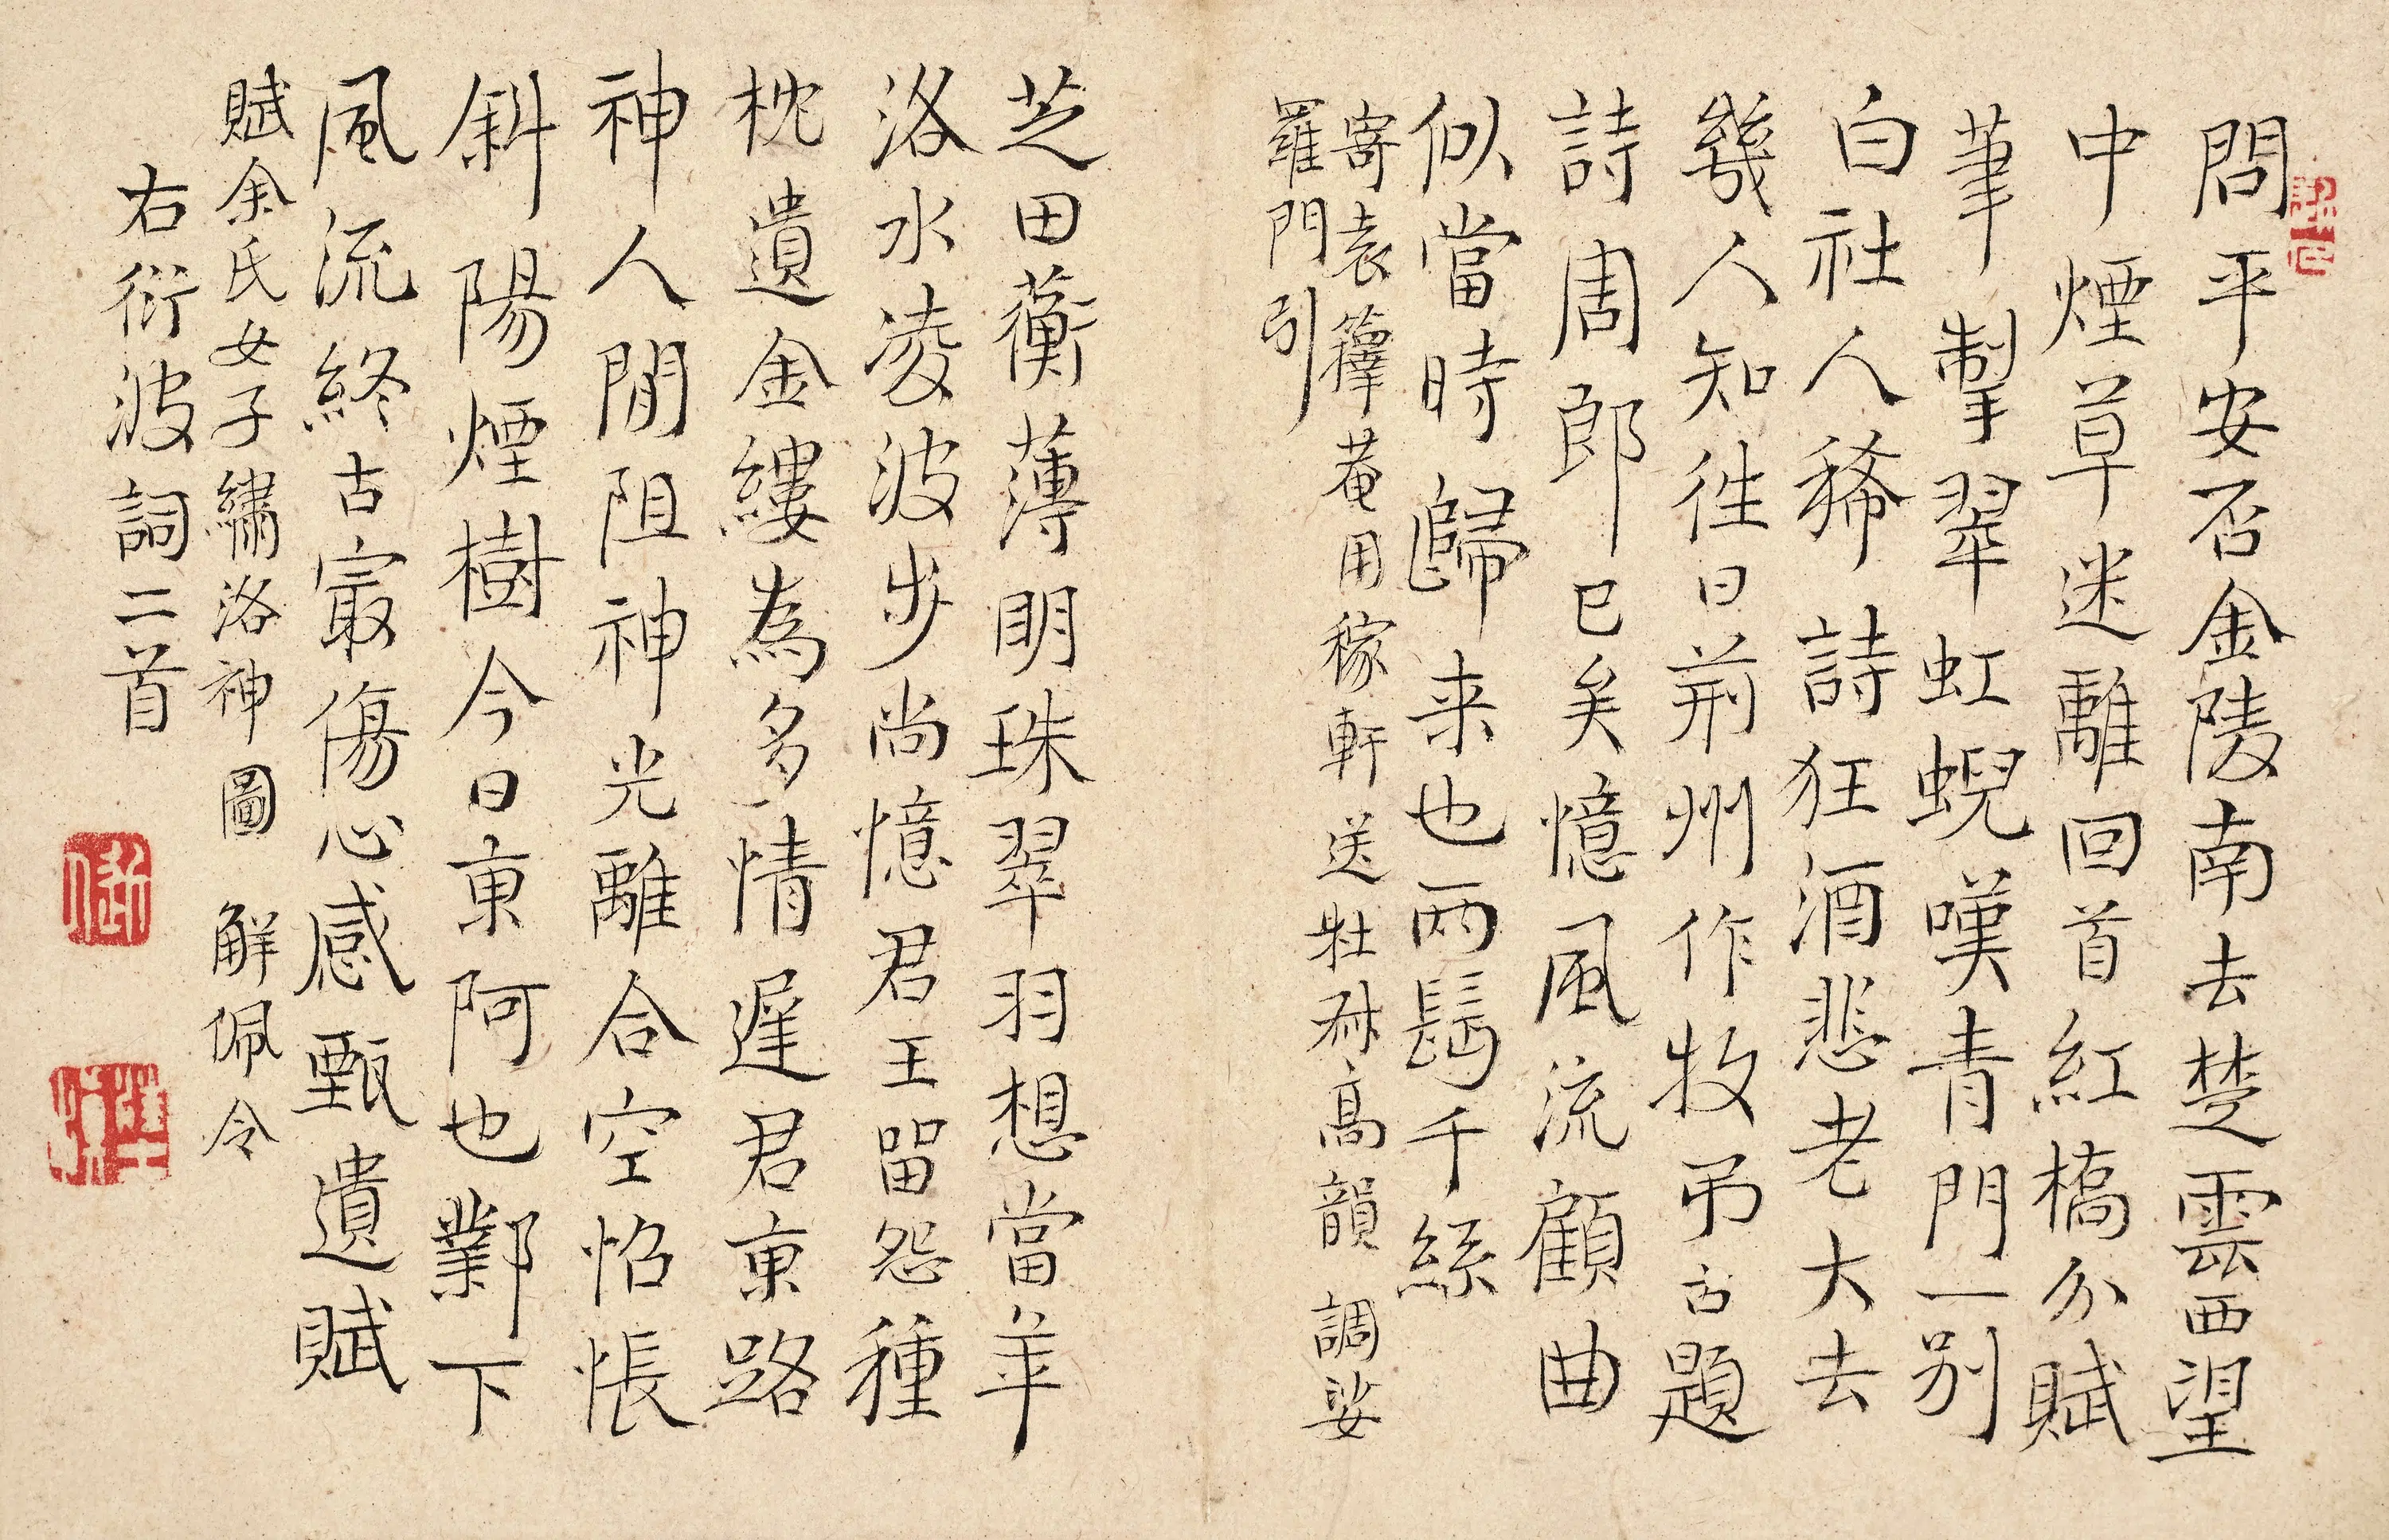 問平安否金陵南去楚雲西望
中煙草迷離回首紅橋分賦
筆掣翠虹蜺嘆青門一别
白社人稀詩狂酒悲老大去
幾人知徃日荊州作牧弔古題
詩周郎已矣憶風流顧曲
似當時歸来也兩鬓千絲
寄袁籜菴用稼軒送杜叔高韻 調娑
羅門引
芝田蘅薄明珠翠羽想當年
洛水凌波步尚憶君王留怨種
枕遺金縷為多情遲君東路
神人間阻神光離合空怊悵
斜陽煙樹今日東阿也鄴下
風流終古最傷心感甄遺賦
賦余氏女子繡洛神圖 解佩令
右衍波詞二首